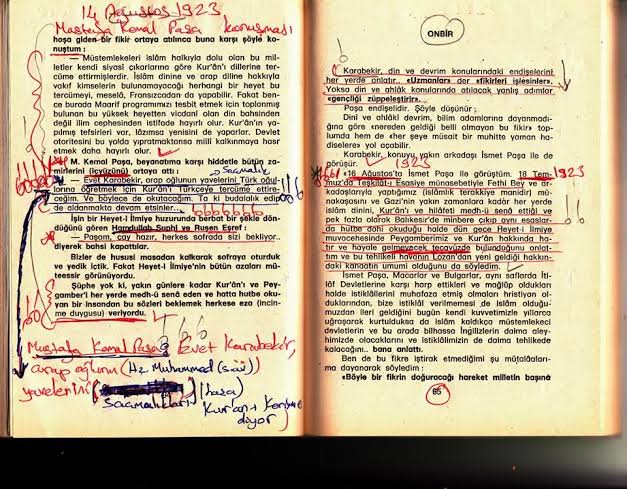 14 Ağustos 1923
Mustafa Kemal Paşa konuşması
hoşa giden bir fikir ortaya atılınca buna karşı şöyle ko-
nuştum :
— Müstemlekeleri islâm halkıyla dolu olan bu mil-
letler kendi siyasi çıkarlarına göre Kur'ân'ı dillerine ter-
cüme ettirmişlerdir. İslâm dinine ve arap diline hakkıyla
vakıf kimselerin bulunamayacağı herhangi bir heyet bu
tercümeyi, meselâ, Fransızcadan da yapabilir. Fakat ben-
ce burada Maarif programımızı tesbit etmek için toplanmış
bulunan bu yüksek heyetten vicdani olan din bahsinden
değil ilim cephesinden istifade hayırlı olur. Kur'ân'ın ya-
pılmış tefsirleri var, lâzımsa yenisini de yaparlar. Devlet
otoritesini bu yolda yıpratmaktansa milli kalkınmaya hasr
etmek daha hayırlı olur.
M. Kemal Paşa, beyanatıma karşı hiddetle bütün za-
mirlerini (içyüzünü) ortaya attı :
Saçmalık
— Evet Karabekir, arap oğlunun yavelerini Türk oğul-
larına öğretmek için Kur'ân'ı Türkçeye tercüme ettire-
ceğim. Ve böylece de okutacağım. Ta ki budalalık edip
de aldanmakta devam etmesinler...
İşin bir Heyet-i İlmiye huzurunda berbat bir şekle dön-
düğünü gören Hamdullah Suphi ve Ruşen Eşref :
— Paşam, çay hazır, herkes sofrada sizi bekliyor..
diyerek bahsi kapattılar.
Bizler de hususi masadan kalkarak sofraya oturduk
ve yedik içtik. Fakat Heyet-i İlmiye'nin bütün azaları mü-
teessir görünüyordu.
Şüphe yok ki, yakın günlere kadar Kur'ân'ı ve Pey-
gamber'i her yerde medh-ü senâ eden ve hatta hutbe oku-
yan bir insandan bu sözleri beklemek herkese eza (incin-
me duygusu) veriyordu.
Mustafa Kemal Paşa: Evet Karabekir,
arap oğlunu (Hz Muhammed (sav))
yavelerini
Saçmalıkların
(haşa)
Kur'an-ı Kerime
diyor)
ONBİR
Karabekir, din ve devrim konularındaki endişelerini
her yerde anlatır.. «Uzmanlar» der «fikirleri işlesinler».
Yoksa din ve ahlâk konularında atılacak yanlış adımlar
«gençliği züppeleştirir».
Paşa endişelidir. Şöyle düşünür :
Dini ve ahlâki devrim, bilim adamlarına dayanmadı-
ğına göre nereden geldiği belli olmayan bu fikir» top-
lumda hem de «her şeye müsait bir muhitte yaman ha-
diselere» yol açacaktır.
Karabekir, konuyu yakın arkadaşı İsmet Paşa ile de
görüşür.
1923
«16 Ağustos'ta İsmet Paşa ile görüştüm. 18 Tem-
1923
muz'da Teşkilât-ı Esasiye münasebetiyle Fethi Bey ve ar-
kadaşlarıyla yaptığımız (islâmlık terakkiye manidir) mü-
nakaşasını ve Gazi'nin yakın zamanlara kadar her yerde
islâm dinini, Kur'ân'ı ve hilâfeti medh-ü senâ ettiği ve
pek fazla olarak Balıkesir'de minbere çıkıp aynı esaslar-
da hutbe dahi okuduğu halde dün gece Heyet-i İlmiye
muvacehesinde Peygamberimiz ve Kur'ân hakkında ha-
tır ve hayale gelmeyecek tecavüzde bulunduğunu anlat-
tım ve bu tehlikeli havanın Lozan'dan yeni geldiği hakkın-
daki kanaatin umumi olduğunu da söyledim.
İsmet Paşa, Macarlar ve Bulgarlar, aynı saflarda İti-
lâf Devletlerine karşı harp ettikleri ve mağlûp oldukları
halde istiklâllerini muhafaza etmiş olmaları hıristiyan ol-
duklarından, bize istiklâl verilmemesi de islâm olduğu-
muzdan ileri geldiğini bugün kendi kuvvetimizle yıllarca
uğraşarak kurtulduksa da islâm kaldıkça müstemlekeci
devletlerin ve bu arada bilhassa İngilizlerin daima aley-
himizde olacaklarını ve istiklâlimizin de daima tehlikede
kalacağını... bana anlattı.
Ben de bu fikre iştirak etmediğimi şu mütalâaları-
ma dayanarak söyledim :
«Böyle bir fikrin doğuracağı hareket milletin başına
95